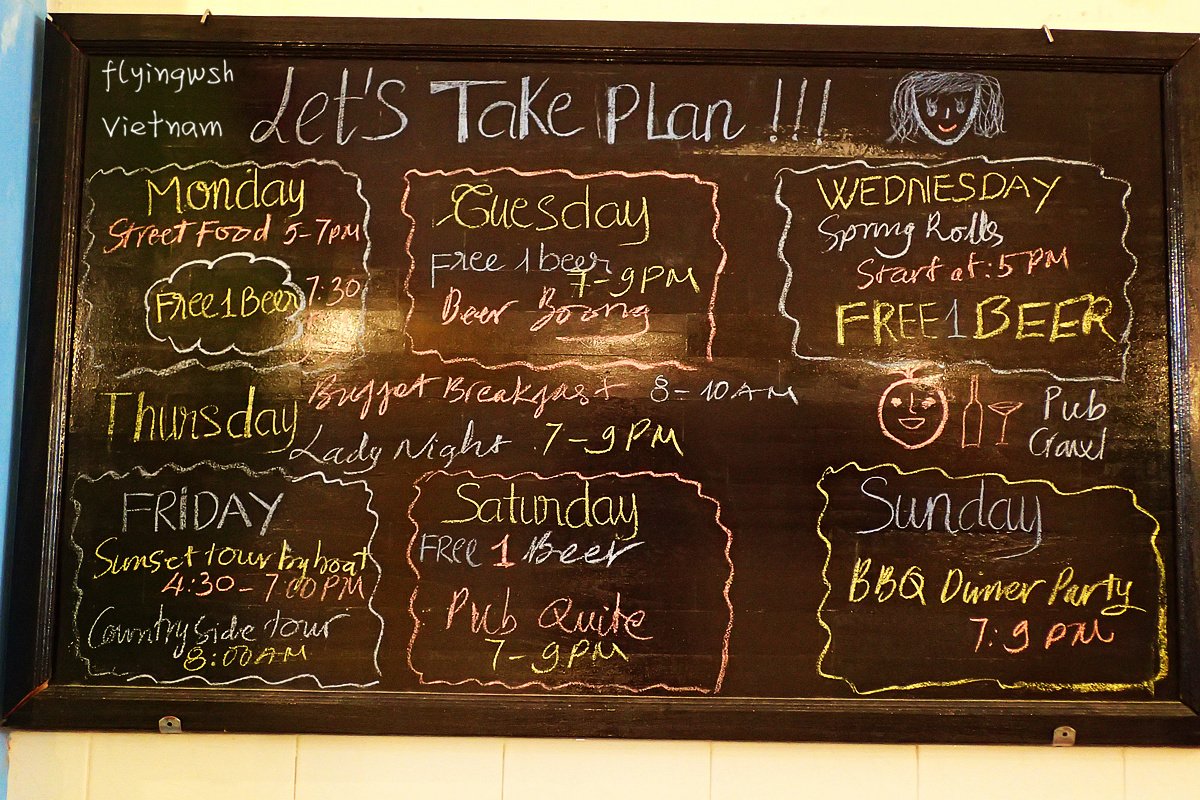 flyingwsh
Vietnam
Let's Take Plan !!!
Monday
Street Food 5-7PM
Free 1 Beer 7:30
Tuesday
Free 1 beer
7-9PM
Beer Boong
WEDNESDAY
Spring Rolls
Start at: 5 PM
FREE 1 BEER
Thursday
Buffet Breakfast 8-10AM
Lady Night 7-9PM
Pub
Crawl
FRIDAY
Sunset tour by boat
4:30-7:00PM
Country side tour
8:00AM
Saturday
FREE 1 Beer
Pub Quite
7-9PM
Sunday
BBQ Dinner Party
7:9 PM